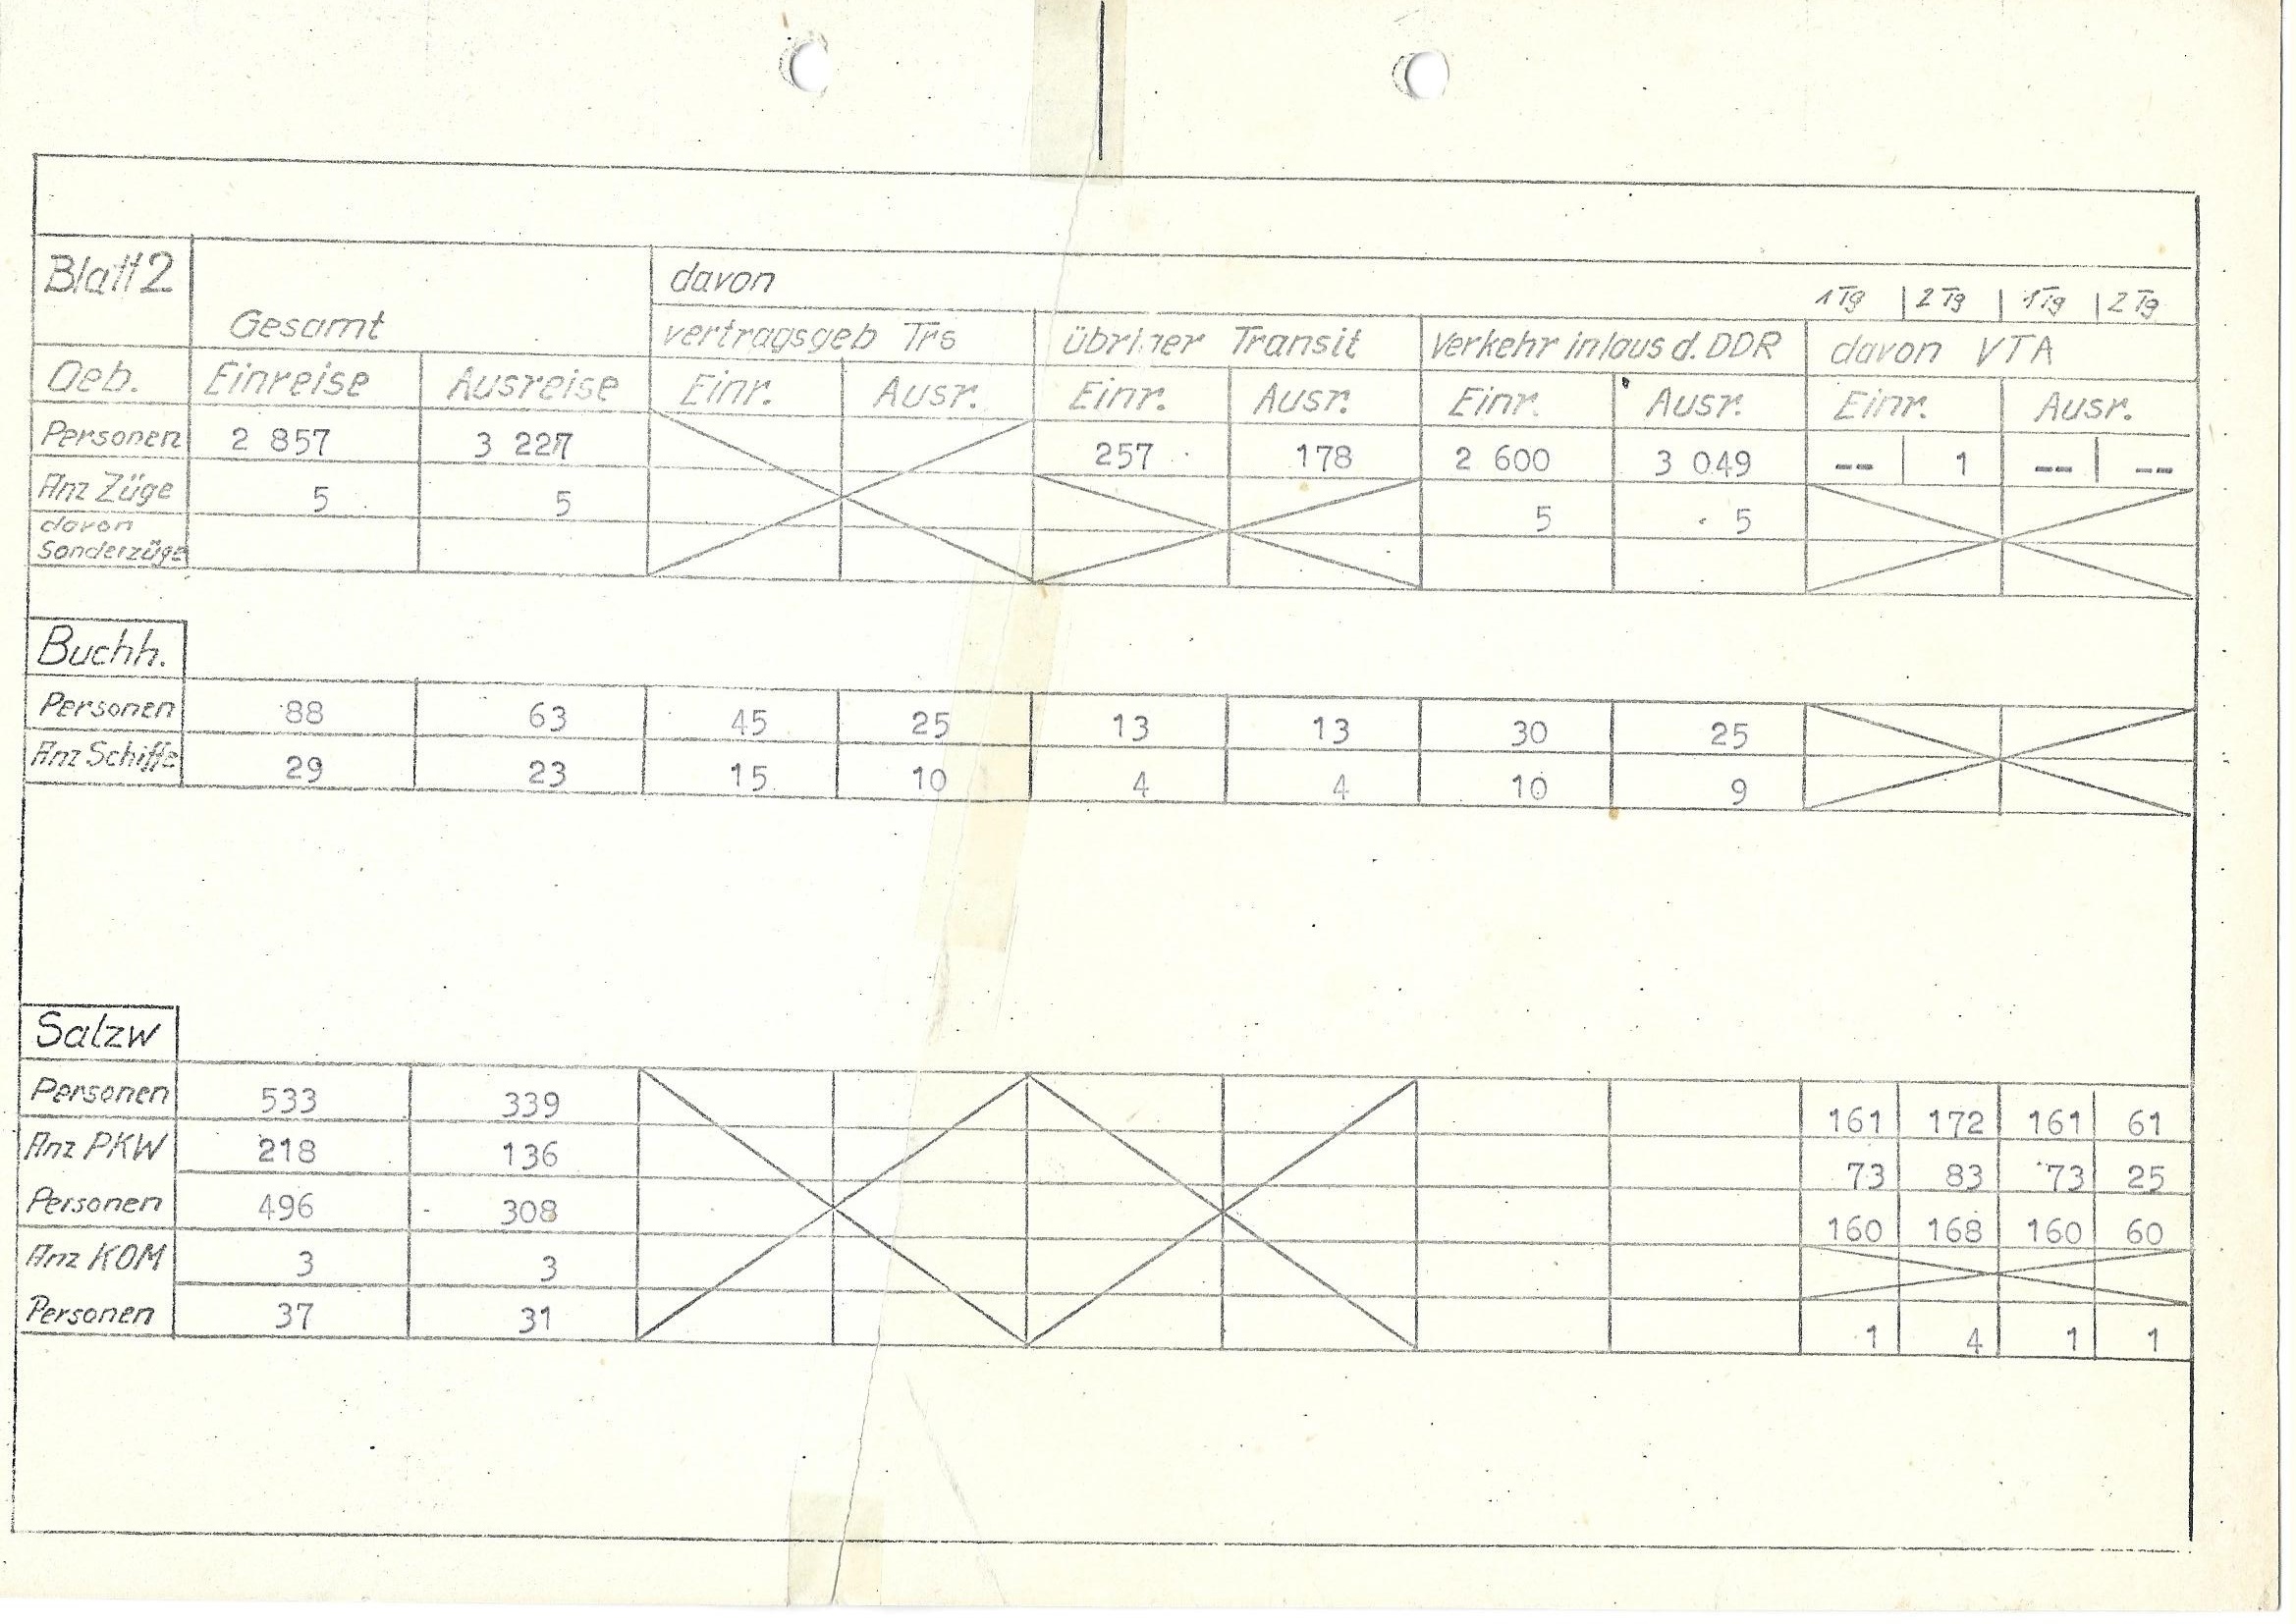 Blatt 2
davon
1 Tg | 2 Tg | 1 Tg | 2 Tg
Gesamt vertragsgeb Trs übriger Transit Verkehr in/aus d. DDR davon VTA
Oeb. Einreise Ausreise Einr. Ausr. Einr. Ausr. Einr. Ausr. Einr. Ausr.
Personen 2 857 3 227 257 178 2 600 3 049 -- 1 -- --
Anz Züge 5 5 5 5
davon
Sonderzüge
Buchh.
Personen 88 63 45 25 13 13 30 25
Anz Schiffe 29 23 15 10 4 4 10 9
Salzw
Personen 533 339 161 172 161 61
Anz PKW 218 136 73 83 73 25
Personen 496 308 160 168 160 60
Anz KOM 3 3
Personen 37 31 1 4 1 1